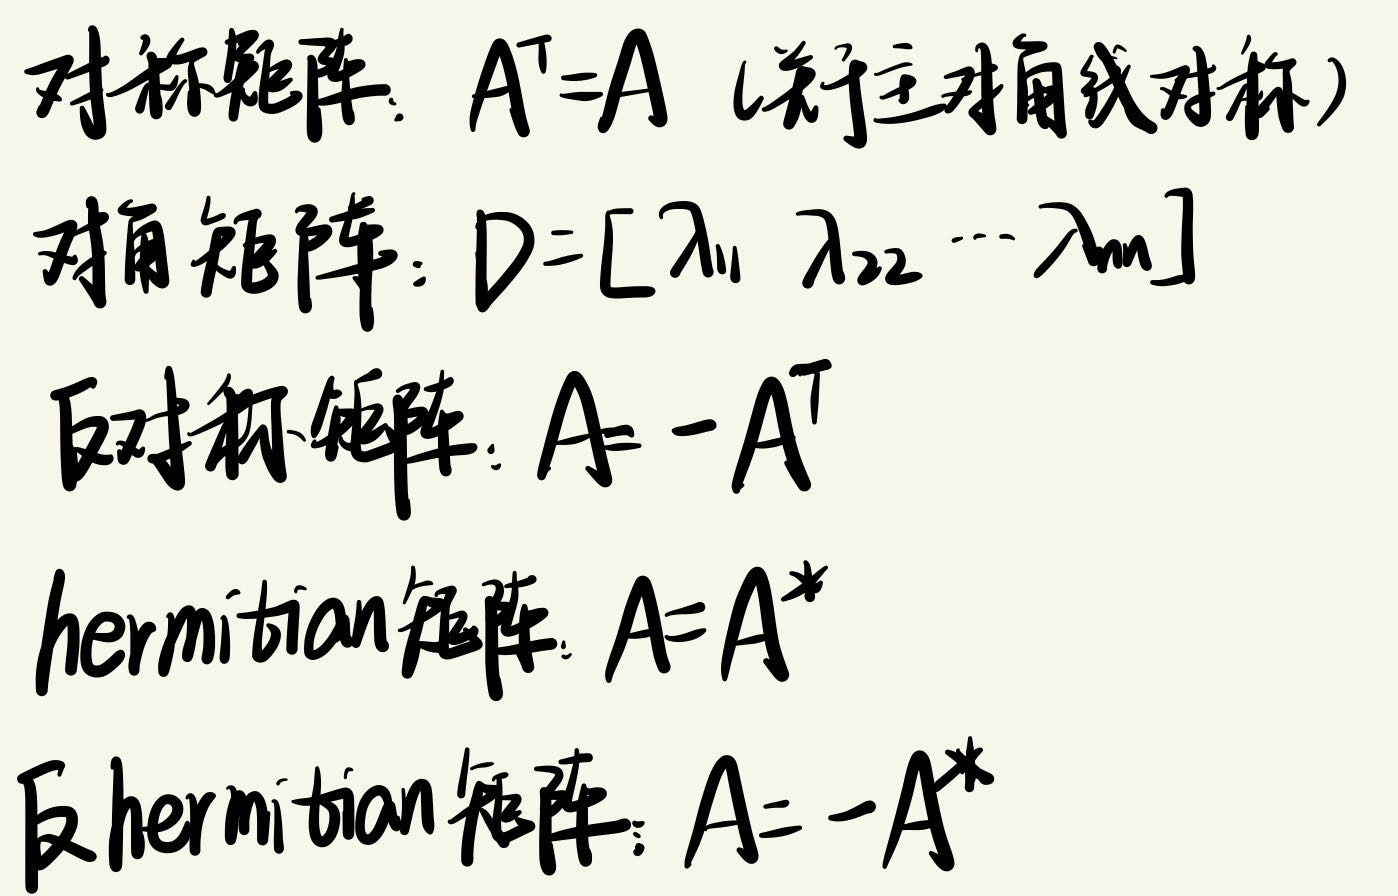 对称矩阵: Aᵀ=A (关于主对角线对称)
对角矩阵: D=[λ₁₁ λ₂₂ ⋯ λₙₙ]
反对称矩阵: A=-Aᵀ
hermitian矩阵: A=A*
反hermitian矩阵: A=-A*